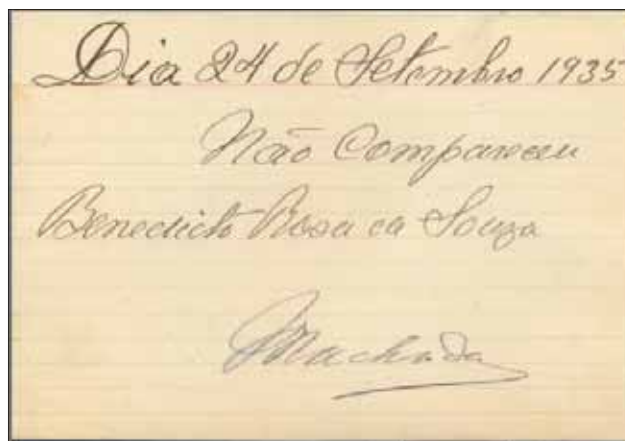 Dia 24 de Setembro 1935
Não Compareceu
Benedicto Rosa ca Souza
Machado